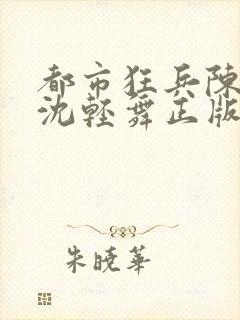 都市狂兵陳
沈輕舞正版
朱曉華